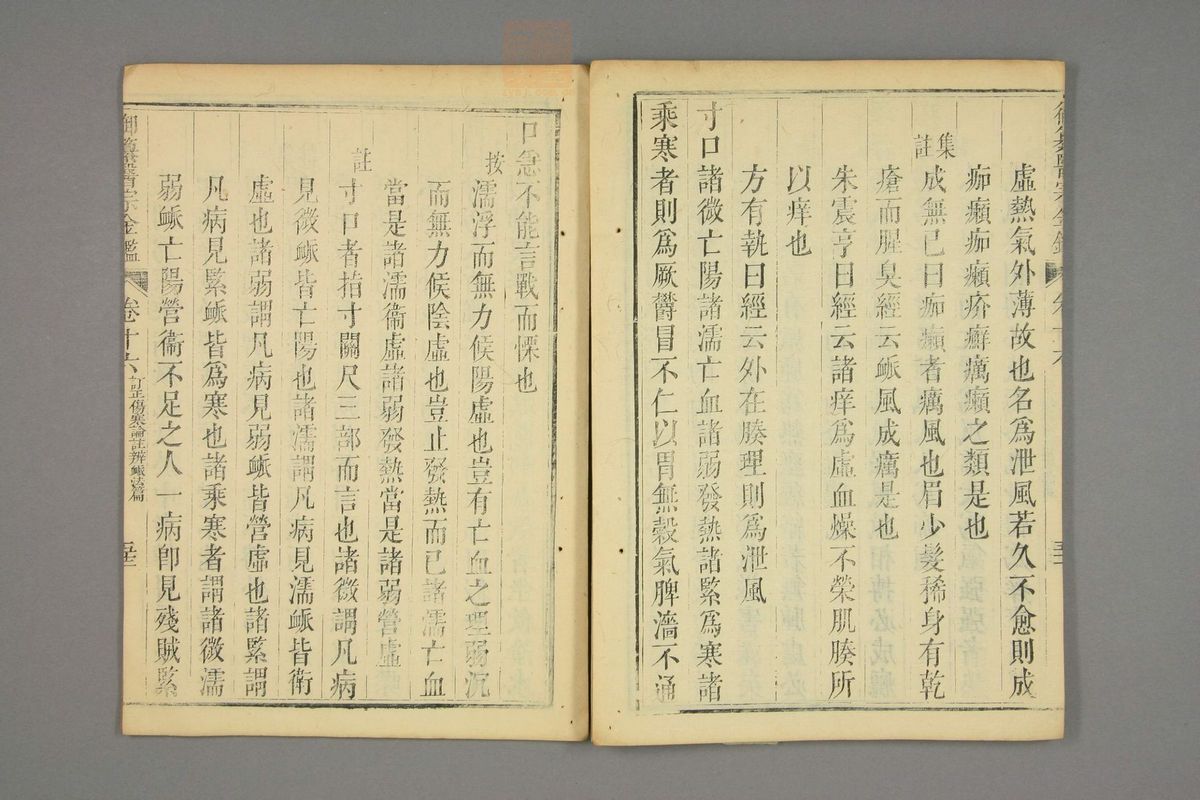 虛熱氣外薄故也名爲泄風若久不愈則成
痂癩痂癩疥癬癘癩之類是也
集註
成無已曰痂癩者癘風也眉少髮稀身有乾
瘡而腥臭經云䘑風成癘是也
朱震亨曰經云諸痒爲虛血燥不榮肌腠所
以痒也
方有執曰經云外在腠理則爲泄風
寸口諸微亡陽諸濡亡血諸弱發熱諸緊爲寒諸
乘寒者則爲厥鬱冒不仁以胃無穀氣脾濇不通
口急不能言戰而慄也
按
濡浮而無力候陽虛也豈有亡血之理弱沉
而無力候陰虛也豈止發熱而已諸濡亡血
當是諸濡衞虛諸弱發熱當是諸弱營虛
註
寸口者指寸關尺三部而言也諸微謂凡病
見微䘑皆亡陽也諸濡謂凡病見濡䘑皆衛
虛也諸弱謂凡病見弱䘑皆營虛也諸緊謂
凡病見緊䘑皆爲寒也諸乘寒者謂諸微濡
弱䘑亡陽營衞不足之人一病卽見殘賊緊
御纂醫宗金鑑 卷十六 訂正傷寒論註辨䘑法篇